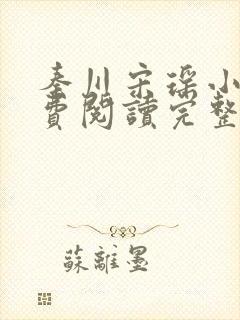 秦川宋瑶小
費閱讀完整
蘇離墨